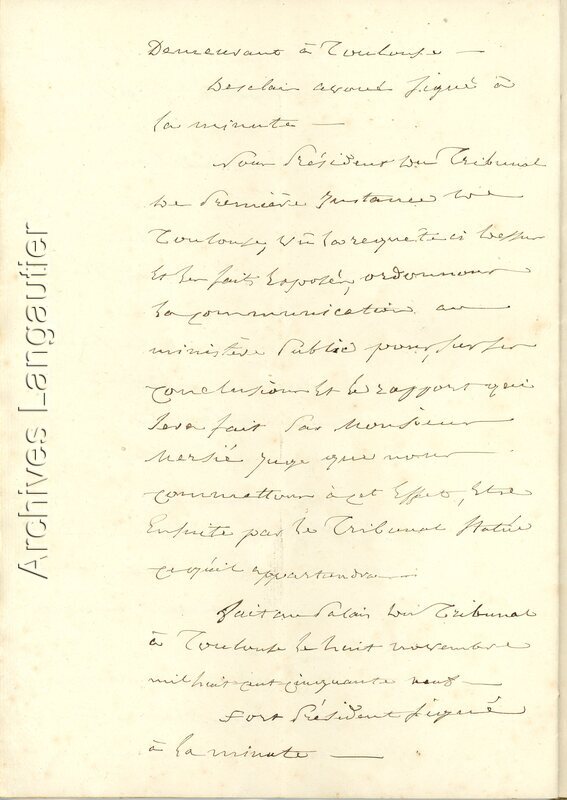 Demeurant à Toulouse —
Desclair avoué signé à
la minute —
Nous Président du Tribunal
de Première Instance de
Toulouse, Vû la requete ci dessus
Et les faits Exposés, ordonnons
la communication au
ministère Public pour, sur ses
conclusions Et le rapport qui
sera fait Par Monsieur
juge que nous
commettons à cet Effet, Etre
Ensuite par le Tribunal Statué
ce qu'il appartiendra —
Fait au Palais du Tribunal
à Toulouse le huit novembre
mil huit cent cinquante neuf —
Fort Président Signé
à la minute —
Archives Langautier